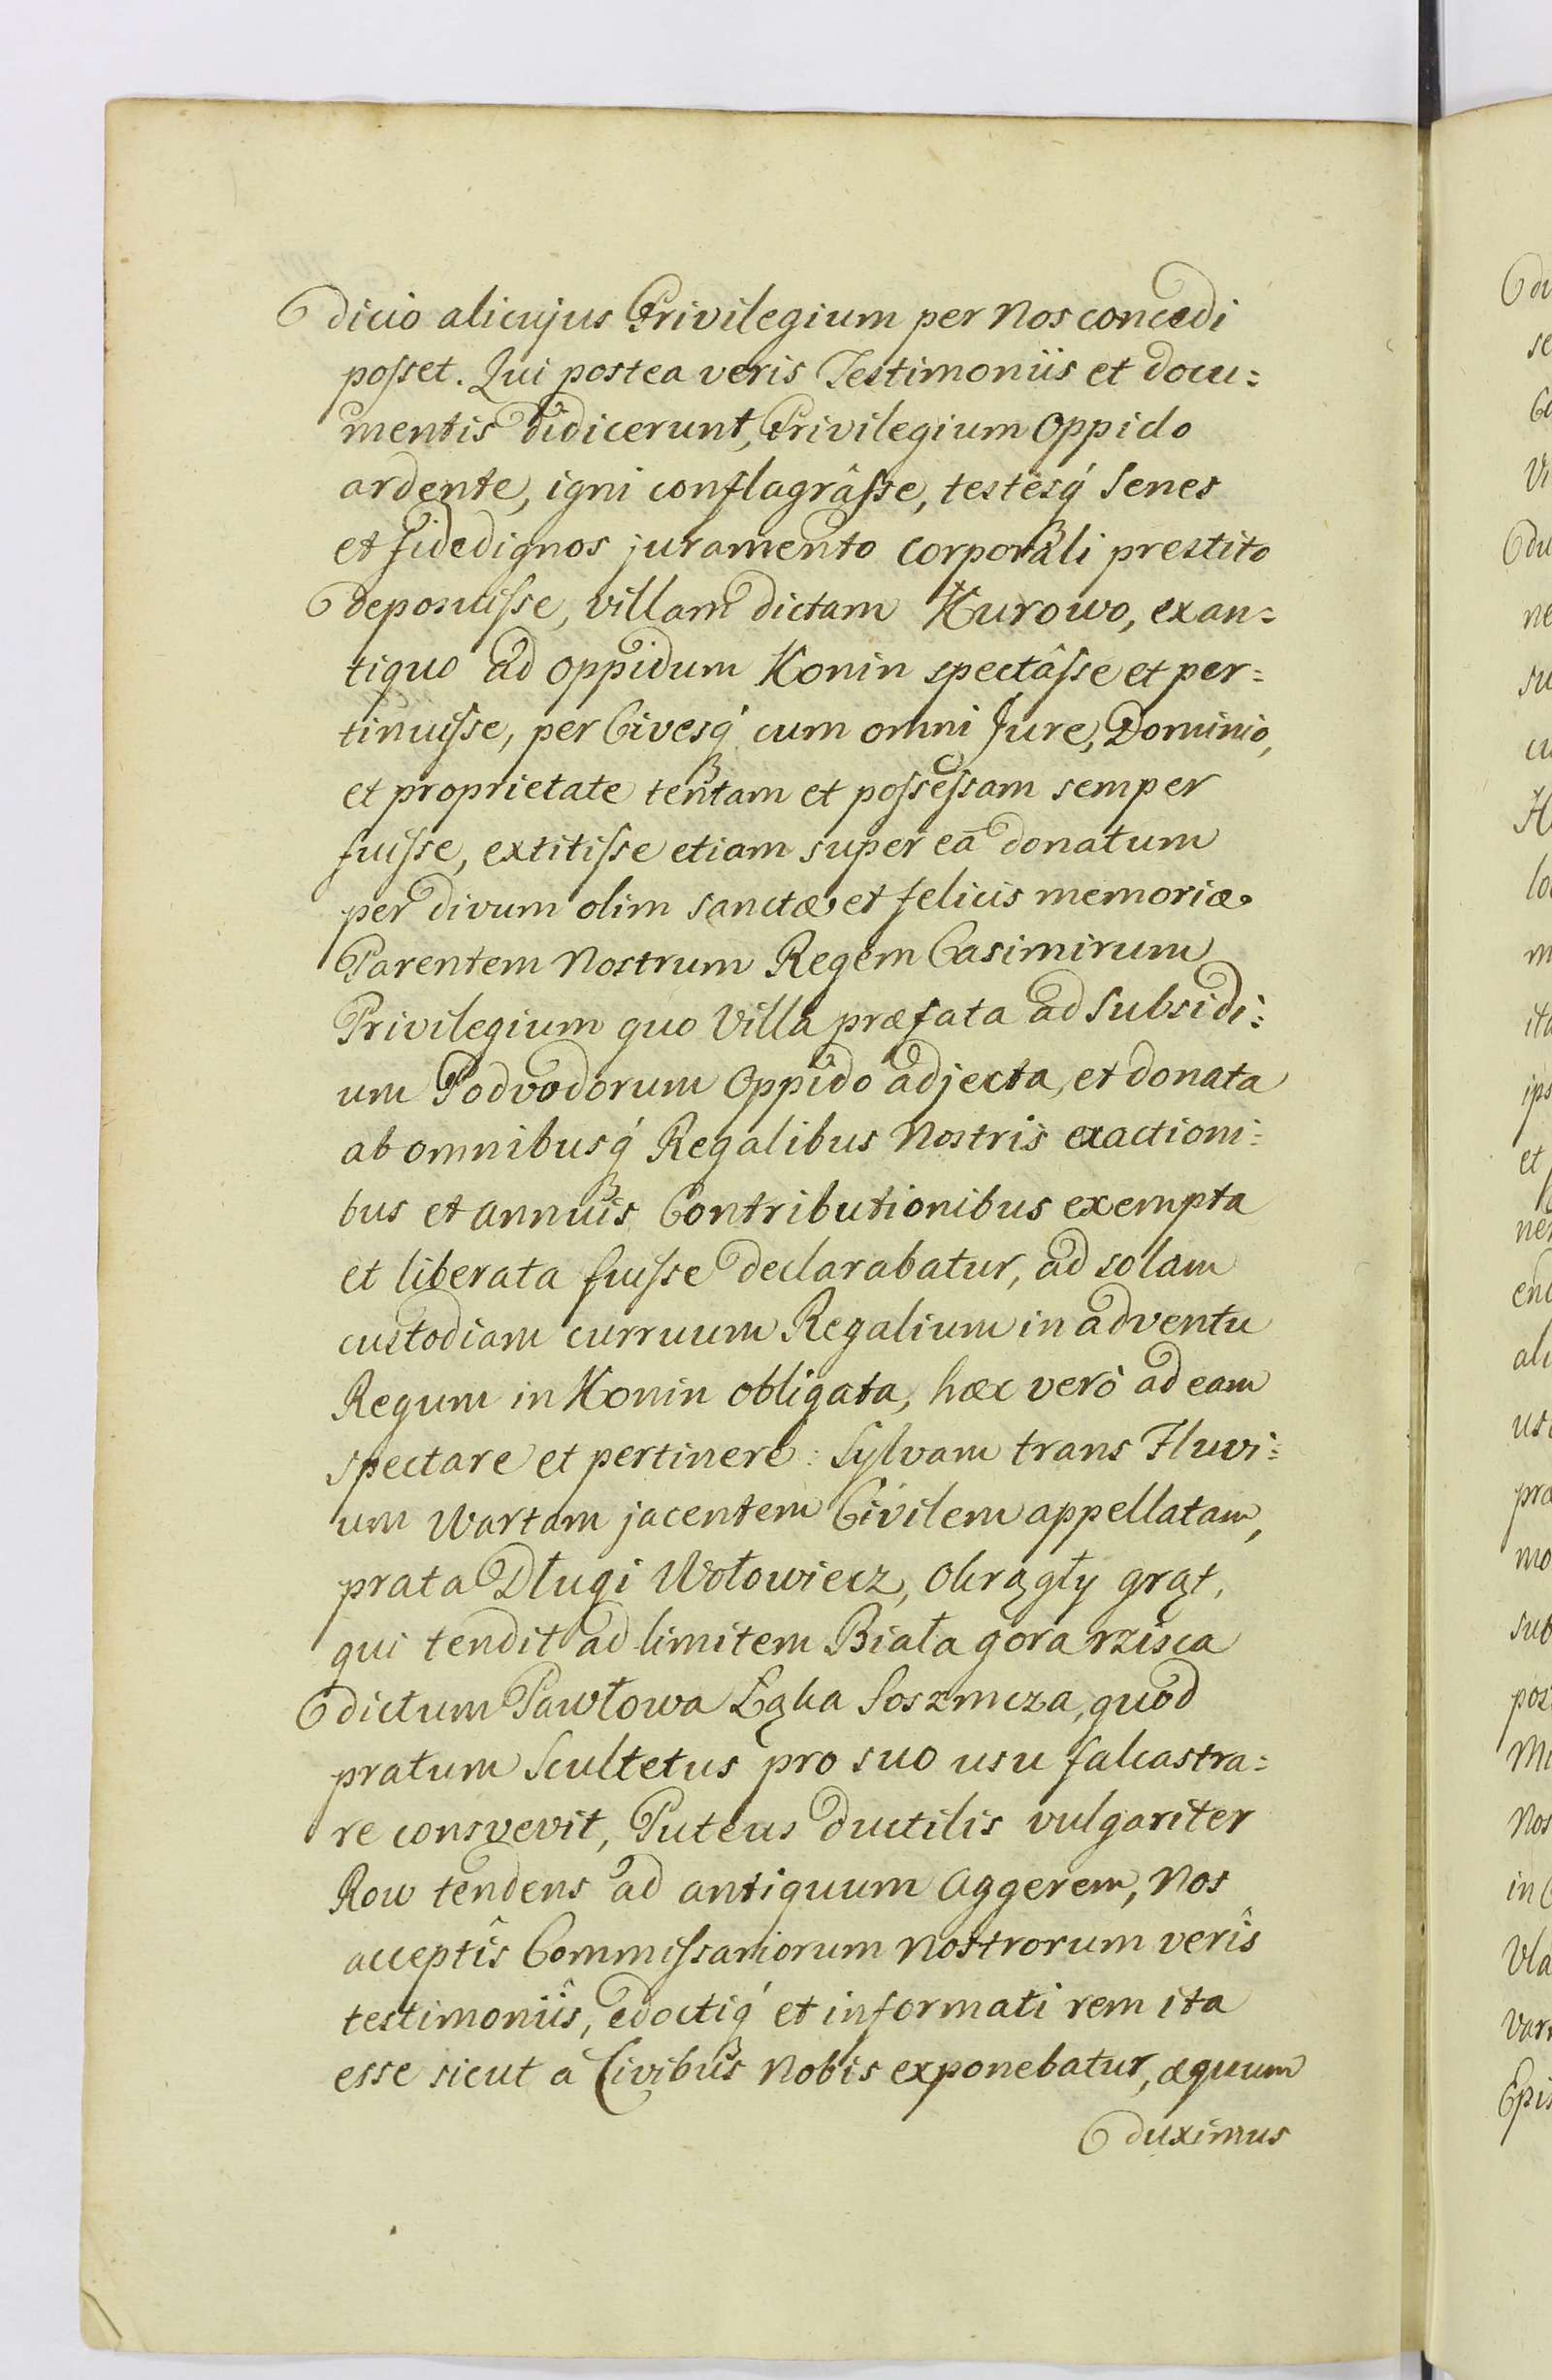 dicio alicujus Privilegium per Nos concedi
posset. Qui postea veris Testimoniis et docu=
mentis didicerunt, Privilegium Oppido
ardente, igni conflagrâsse, testesq́ Senes
et fidedignos juramento corporali prestito
deposuisse, villam dictam Kurowo, ex an=
tiquo ad oppidum Konin spectâsse et per=
tinuisse, per Civesq́ cum omni Jure, Dominio,
et proprietate tentam et possessam semper
fuisse, extitisse etiam super eâ donatum
per divum olim Sanctæ et felicis memoriæ
Parentem Nostrum Regem Casimirum
Privilegium quo Villa præfata ad Subsidi=
um Podvodorum Oppido adjecta, et donata
ab omnibusq́ Regalibus Nostris exactioni=
bus et annuis Contributionibus exempta
et liberata fuisse declarabatur, ad solam
custodiam curruum Regalium in adventu
Regum in Konin obligata, hæc verò ad eam
spectare et pertinere: Sylvam trans Fluvi=
um Wartam jacentem Civilem appellatam,
prata Długi Wołowiecz, Okrągły grąt,
qui tendit ad limitem Biała gora rzisca
dictum Pawłowa Łąka Soszmcza, quod
pratum Scultetus pro suo usu falcastra=
re consvevit, Puteus ductilis vulgariter
Row tendens ad antiquum Aggerem, Nos
acceptîs Commissariorum Nostrorum verîs
testimoniîs, edoctiq́ et informati rem ita
esse sicut à Civibus Nobis exponebatur, æquum
duximus